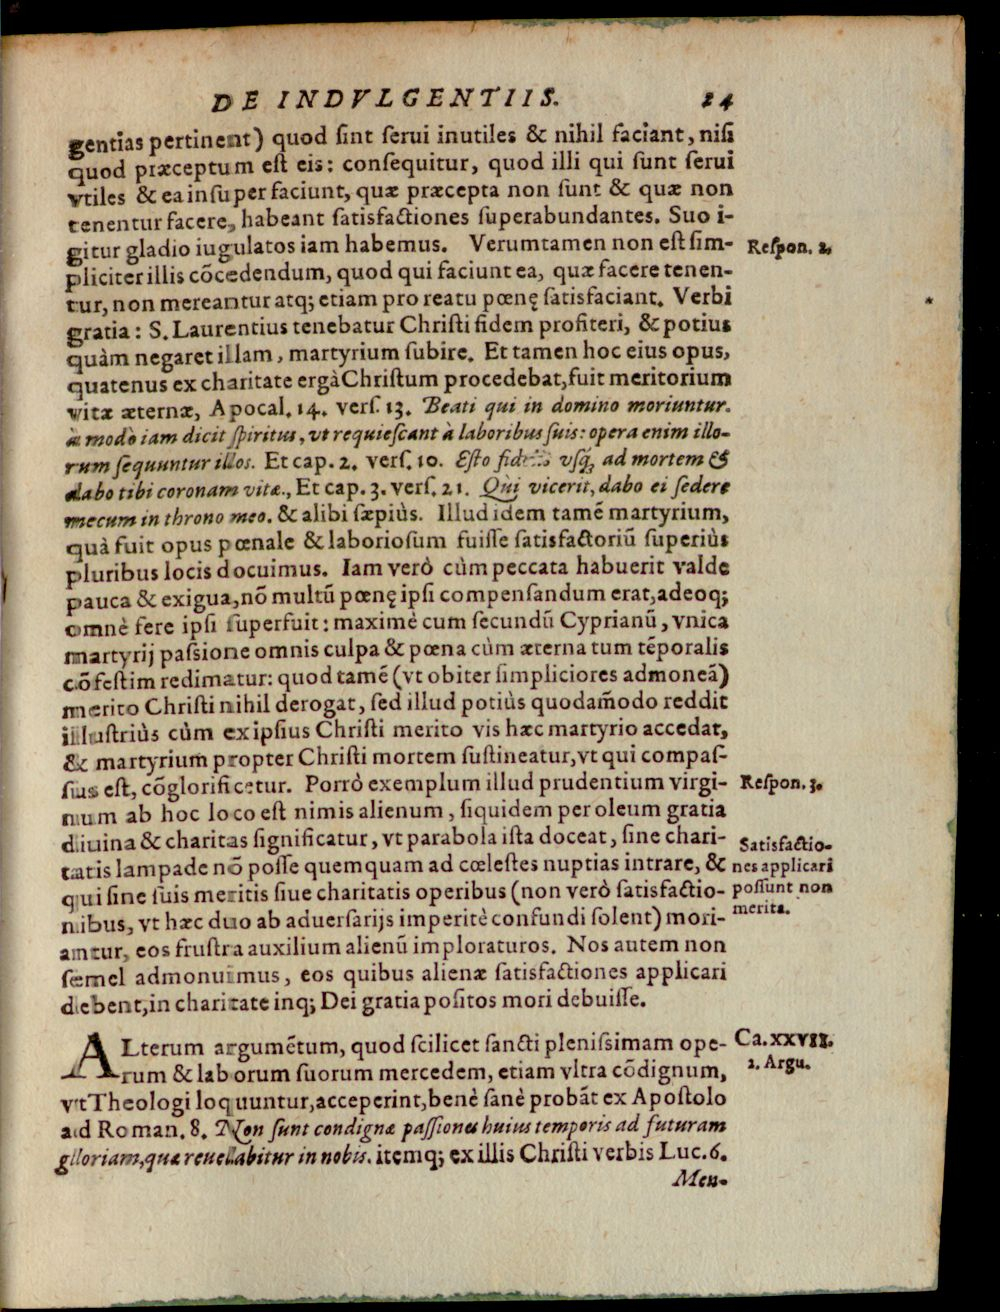 DE INDVLGENTIIS. 24
gentias pertinent) quod sint serui inutiles & nihil faciant, nisi
quod præceptum est eis: consequitur, quod illi qui sunt serui
vtiles & ea insuper faciunt, quæ præcepta non sunt & quæ non
tenentur facere, habeant satisfactiones superabundantes. Suo i-
gitur gladio iugulatos iam habemus. Verumtamen non est sim-
Respon. 2.
pliciter illis cõcedendum, quod qui faciunt ea, quæ facere tenen-
tur, non mereantur atq; etiam pro reatu pœnę satisfaciant. Verbi
gratia: S. Laurentius tenebatur Christi fidem profiteri, & potius
quàm negaret illam, martyrium subire. Et tamen hoc eius opus,
quatenus ex charitate ergà Christum procedebat, fuit meritorium
vitæ æternæ, Apocal. 14. vers. 13. Beati qui in domino moriuntur.
à modò iam dicit spiritus, vt requiescant à laboribus suis: opera enim illo-
rum sequuntur illos. Et cap. 2. vers. 10. Esto fidelis vsq; ad mortem &
dabo tibi coronam vitæ., Et cap. 3. vers. 21. Qui vicerit, dabo ei sedere
mecum in throno meo. & alibi sæpiùs. Illud idem tamẽ martyrium,
quà fuit opus pœnale & laboriosum fuisse satisfactoriũ superiùs
pluribus locis docuimus. Iam verò cùm peccata habuerit valde
pauca & exigua, nõ multũ pœnę ipsi compensandum erat, adeoq;
omnè fere ipsi superfuit: maximè cum secundũ Cyprianũ, vnica
martyrij passione omnis culpa & pœna cùm æterna tum tẽporalis
cõfestim redimatur: quod tamẽ (vt obiter simpliciores admoneã)
merito Christi nihil derogat, sed illud potiùs quodam̃odo reddit
illustriùs cùm ex ipsius Christi merito vis hæc martyrio accedat,
& martyrium propter Christi mortem sustineatur, vt qui compas-
sius est, cõglorificetur. Porrò exemplum illud prudentium virgi-
Respon. 3.
num ab hoc loco est nimis alienum, siquidem per oleum gratia
diuina & charitas significatur, vt parabola ista doceat, sine chari-
tatis lampade nõ posse quemquam ad cœlestes nuptias intrare, &
qui sine suis meritis siue charitatis operibus (non verò satisfactio-
nibus, vt hæc duo ab aduersarijs imperitè confundi solent) mori-
Satisfactio-
nes applicari
possunt non
merita.
antur, eos frustra auxilium alienũ imploraturos. Nos autem non
semel admonuimus, eos quibus alienæ satisfactiones applicari
debent, in charitate inq; Dei gratia positos mori debuisse.
ALterum argumẽtum, quod scilicet sancti plenissimam ope-
Ca. XXVII.
2. Argu.
rum & laborum suorum mercedem, etiam vltra cõdignum,
vt Theologi loquuntur, acceperint, benè sanè probãt ex Apostolo
ad Roman. 8. Non sunt condignæ passiones huius temporis ad futuram
gloriam, quæ reuelabitur in nobis. itemq; ex illis Christi verbis Luc. 6.
Men-